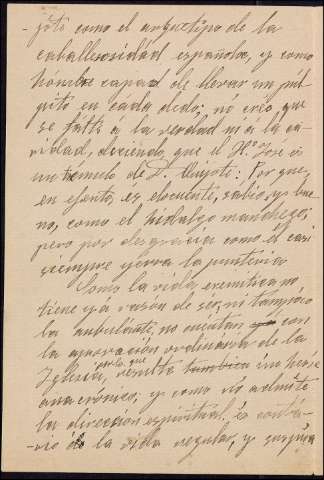 -joté como el arquetipo de la
caballerosidad española, y como
hombre capad de llevar un púl-
pito en cada dedo; no creo que
se falte á la verdad ni á la ca-
ridad, diciendo que el P. José es
un émulo de D. Quijote: Porque,
en efecto, és, elocuente, sabio, y bue-
no, como el hidalgo manchego;
pero por desgracia como él casi
siempre yerra la puntería
Como la vida eremítica no
tiene yá razón de ser, ni tampoco
la ambulante, no cuentan con
la aprovación ordinaria de la
Iglesia, por lo que resulta tambien un héroe
anacrónico; y como nó admite
la dirección espiritual, és contra-
rio á la vida regular, y